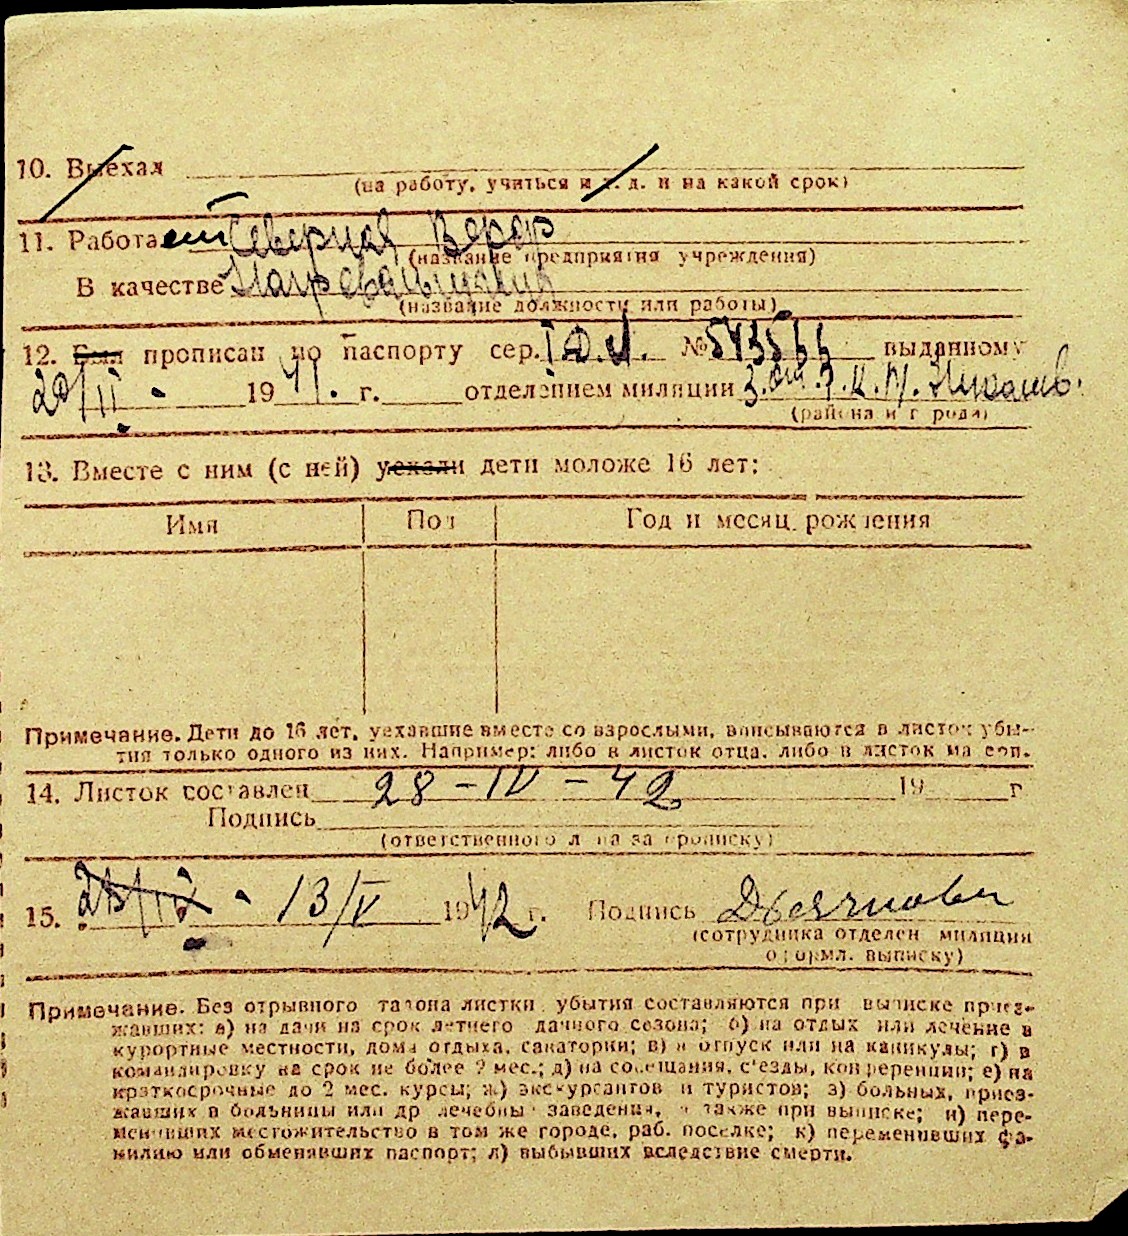 10. Выехал
(на работу, учиться и т. д. и на какой срок)
11. Работает Северная Верфь
(название предприятия учреждения)
В качестве Нагревальщик
(название должности или работы)
12. Был прописан по паспорту сер. I Д.И. № 543566 выданному
20/II. 1941. г. отделением милиции 3. отд. Р.К.М.
(района и города)
13. Вместе с ним (с ней) уехали дети моложе 16 лет:
Имя Пол Год и месяц рождения
Примечание. Дети до 16 лет, уехавшие вместе со взрослыми, вписываются в листок убы-
тия только одного из них. Например: либо в листок отца, либо в листок матери.
14. Листок составлен 28-IV-42 19 г
Подпись
(ответственного лица за прописку)
15. 13/V 1942 г. Подпись
(сотрудника отделен милиции
оформл. выписку)
Примечание. Без отрывного талона листки убытия составляются при выписке приез-
жавших: а) на дачи на срок летнего дачного сезона; б) на отдых или лечение в
курортные местности, дома отдыха, санатории; в) в отпуск или на каникулы; г) в
командировку на срок не более 2 мес.; д) на совещания, с'езды, конференции; е) на
краткосрочные до 2 мес. курсы; ж) экскурсантов и туристов; з) больных, приез-
жавших в больницы или др лечебны заведения, а также при выписке; и) пере-
менивших местожительство в том же городе, раб. поселке; к) переменивших фа-
милию или обменявших паспорт; л) выбывших вследствие смерти.